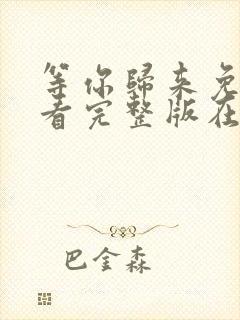 等你歸来免
看完整版在
巴金森